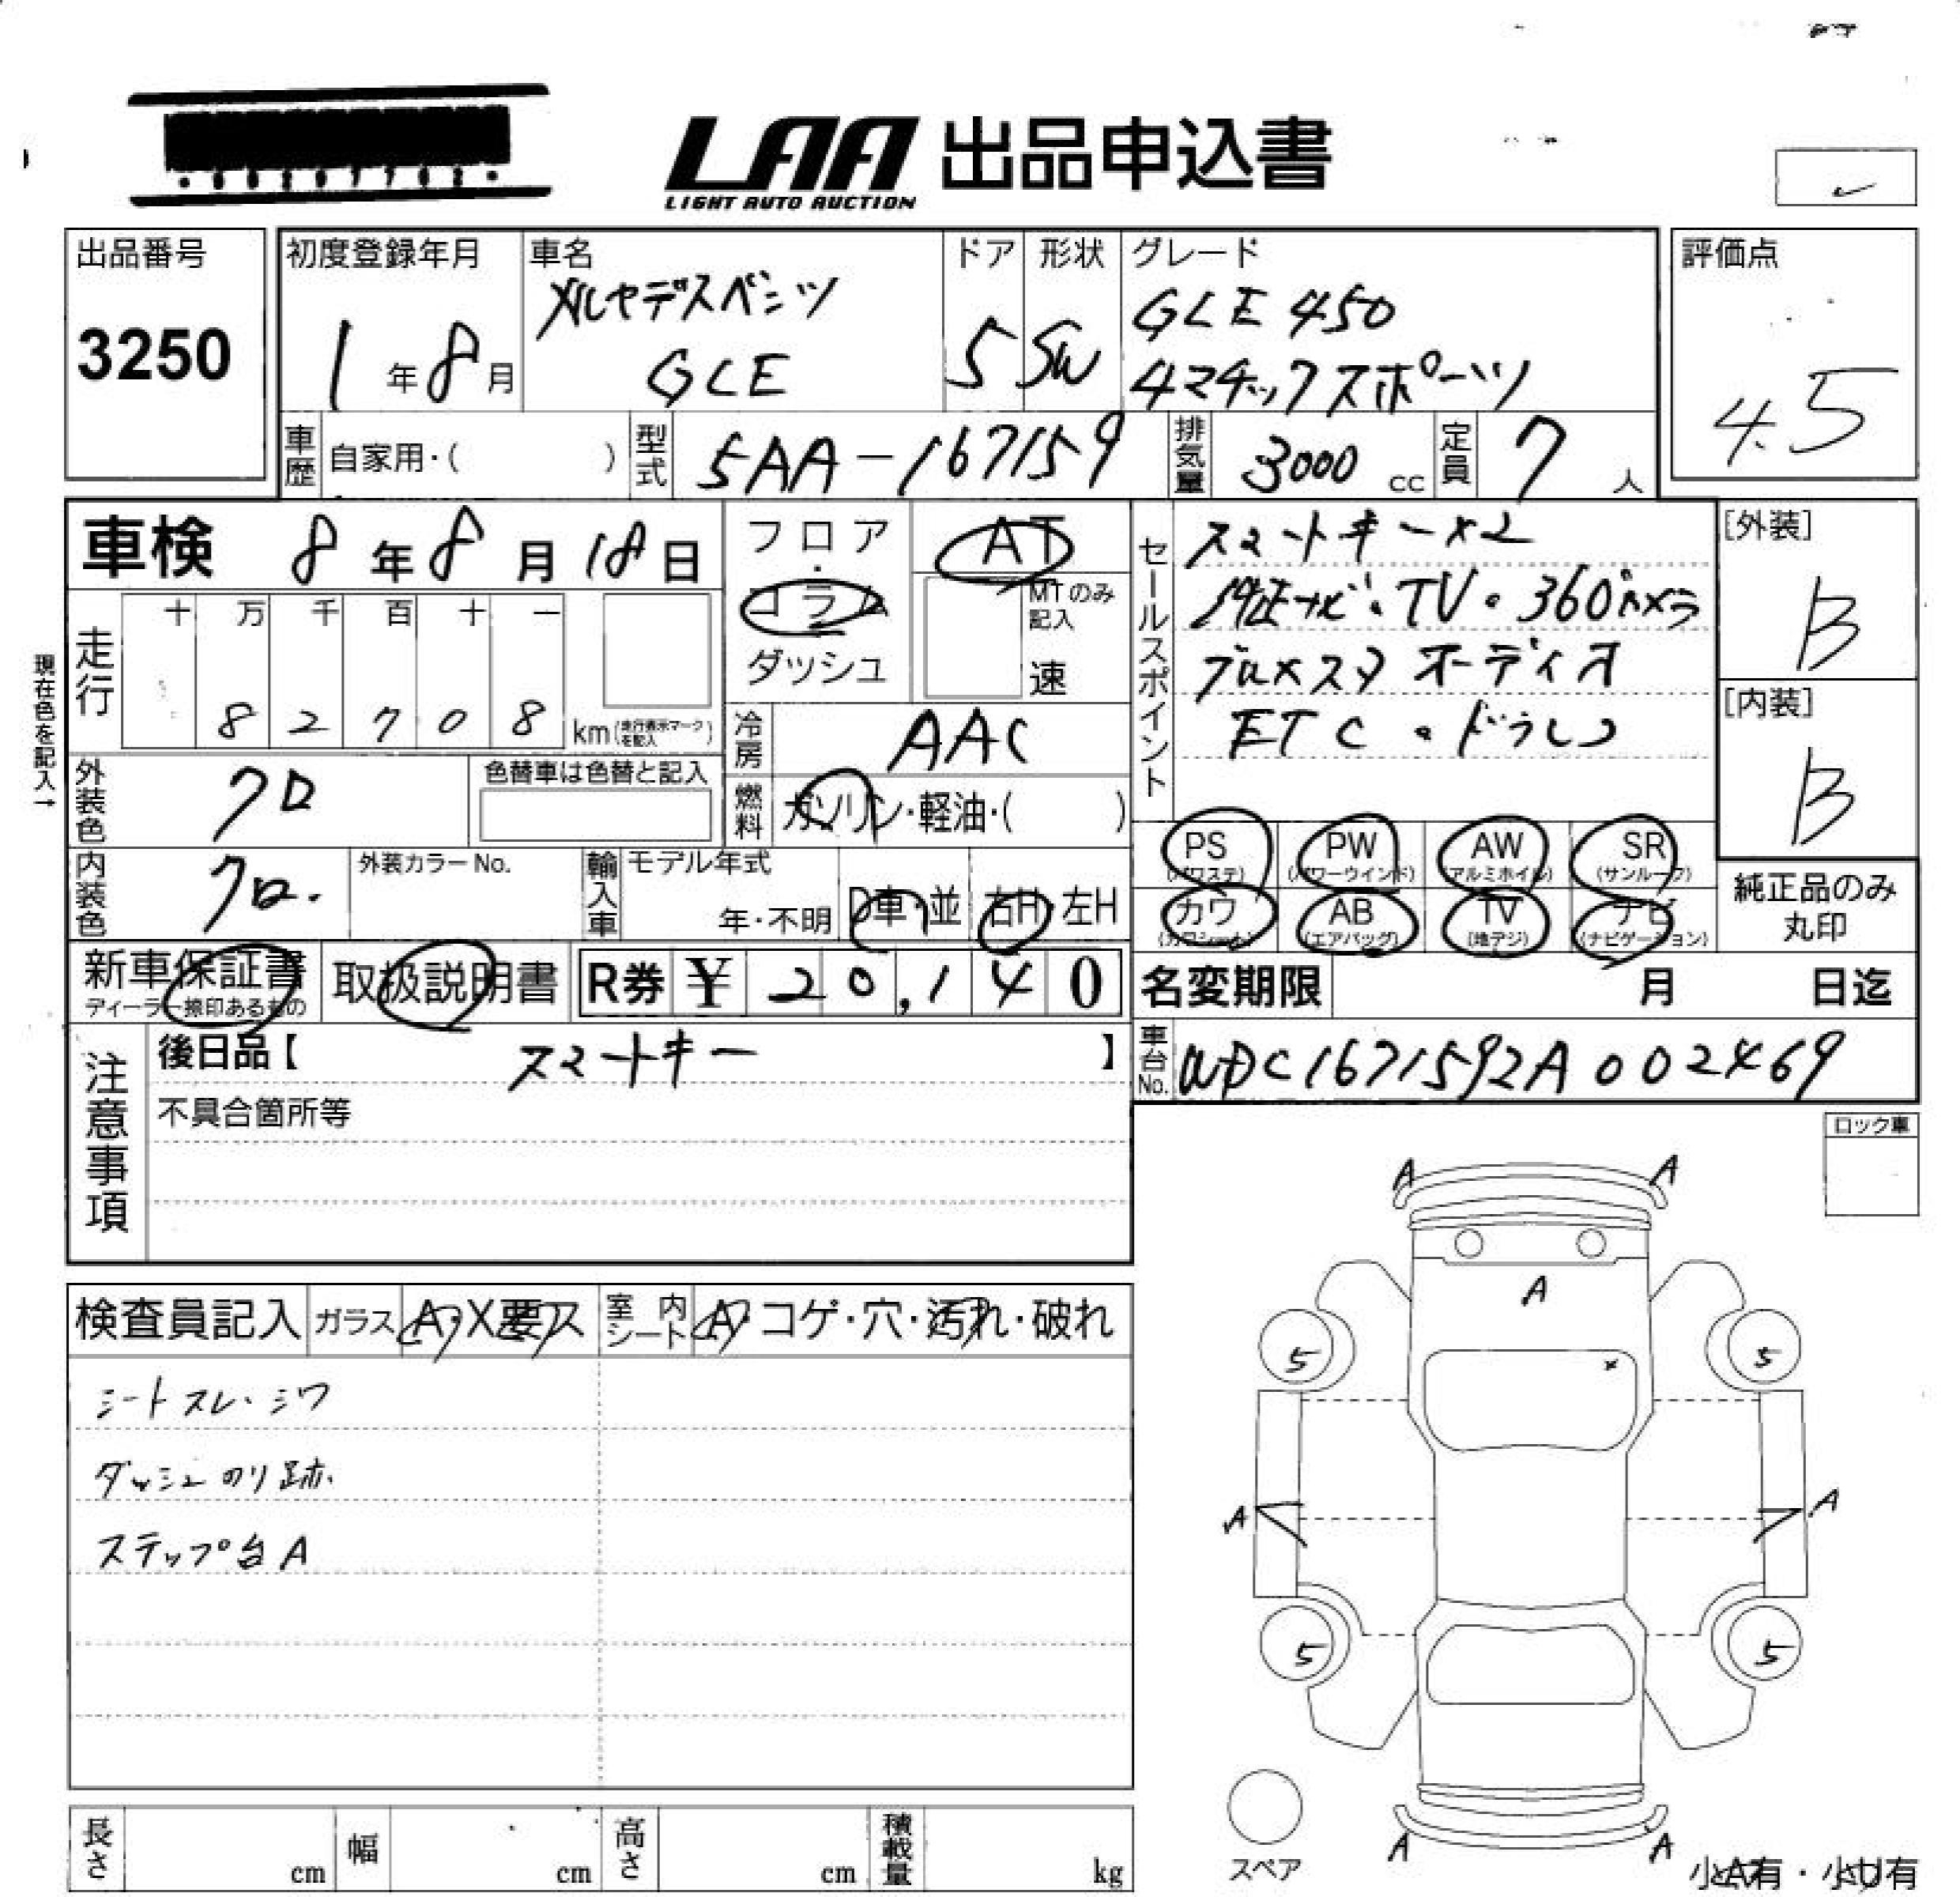 LAA 出品申込書
LIGHT AUTO AUCTION
出品番号
3250
初度登録年月
1年8月
車名
メルセデスベンツ
GLE
ドア
5
形状
SW
グレード
GLE 450
4マチックスポーツ
評価点
4.5
車歴 自家用・( )
型式 5AA-167159
排気量 3000 cc
定員 7 人
車検 8年8月18日
フロア
・
コラム
ダッシュ
AT
MTのみ記入
速
現在色を記入→
走行
十 万 千 百 十 一
8 2 7 0 8 km (走行表示マークを記入)
冷房 AAC
燃料 ガソリン・軽油・( )
外装色 クロ
色替車は色替と記入
内装色 クロ.
外装カラーNo.
輸入車 モデル年式
年・不明 D車・並 右H・左H
セールスポイント
スマートキー×2
純正ナビ・TV・360°カメラ
ブルメスタオーディオ
ETC・ドラレコ
[外装]
B
[内装]
B
PS (パワステ)
PW (パワーウインド)
AW (アルミホイル)
SR (サンルーフ)
カワ (カワシート)
AB (エアバッグ)
TV (地デジ)
ナビ (ナビゲーション)
純正品のみ
丸印
新車保証書
ディーラー捺印あるもの
取扱説明書
R券 ¥ 20,140
名変期限 月 日迄
車台No. WDC1671592A002469
注意事項
後日品【 スマートキー 】
不具合箇所等
ロック車
検査員記入 ガラス A・X要ス 室内シート A・コゲ・穴・汚れ・破れ
シートスレ・シワ
ダッシュのり跡.
ステップ台A
A A
A
5 × 5
A A
5 5
A A
スペア
小A有・小U有
長さ cm 幅 cm 高さ cm 積載量 kg